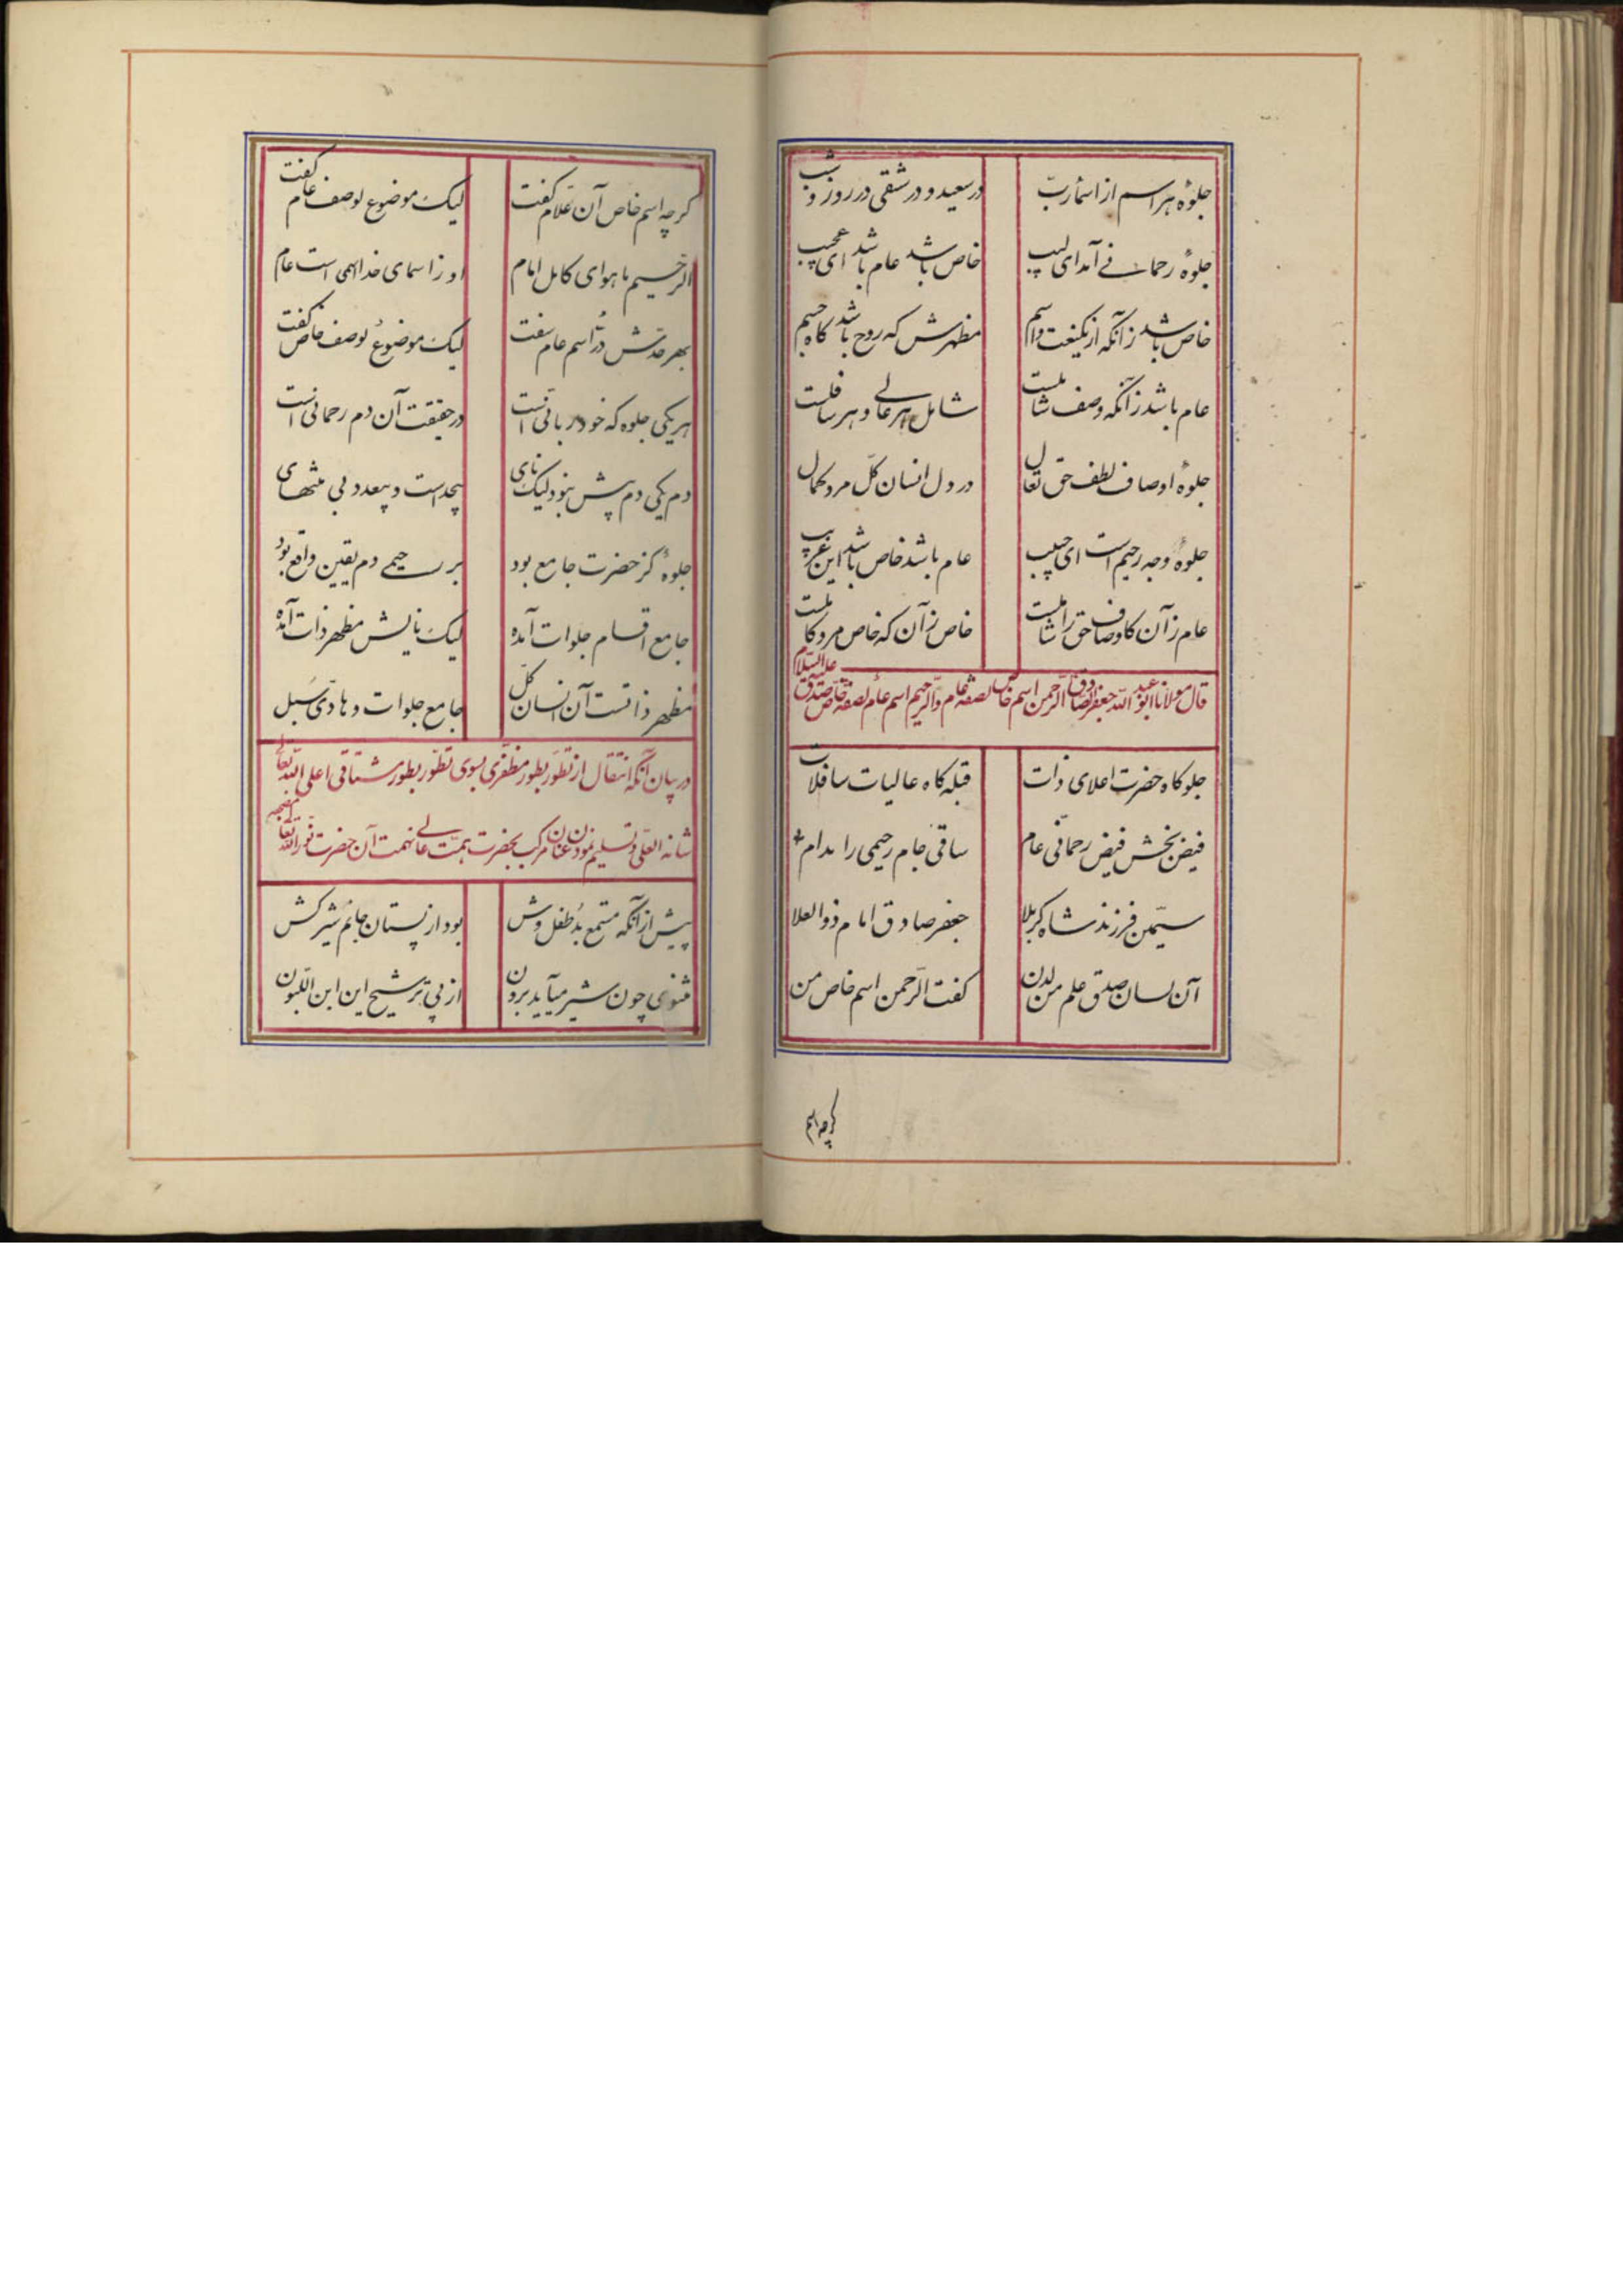 جلوهٔ هر اسم از اسمأ ربّ در سعید و در شقی در روز و شب
جلوهٔ رحمانی آمد ای لبیب خاص باشد عام باشد ای عجیب
خاص باشد زانکه از یکنعت و اسم مظهرش که روح باشد گاه جسم
عام باشد زآنکه وصف شاملست شامل هر عالی و هر سافلست
جلوهٔ اوصاف لطف حق تعال در دل انسان کلّ مرد کمال
جلوهٔ وجه رحیم است ای حبیب عام باشد خاص باشد این غریب
عام زآن کاوصاف حق را شاملست خاص زآن که خاص مرد کاملست
قال مولانا ابو عبد اللّه جعفر الصّادق الرّحمن اسم خاصّ لصفة عام والرّحیم اسم عام لصفة خاصّ صدق علیه السّلام
جلوه‌کاه حضرت اعلای ذات قبله‌کاه عالیات سافلات
فیض‌بخش فیض رحمانی عام ساقی جام رحیمی را مدام
سیّمن فرزند شاه کربلا جعفر صادق امام ذو العلا
آن لسان صدق علم من لدن کفت الرّحمن اسم خاص من
کرچه اسم
کرچه اسم خاص آن علّام کفت لیک موضوع لوصف عام کفت
الرّحیم ما هو ای کامل امام او ز اسمای خدا هم است عام
بهر حدّش درّ اسم عام سفت لیک موضوع لوصف خاص کفت
هر یکی جلوه که خود ربانی است در حقیقت آن دم رحمانی است
دم یکی دم بیش نبود لیک نای بیحد است و بیعدد بی منتهای
جلوهٔ کز حضرت جامع بود بر رحیمی دم یقین واقع بود
جامع اقسام جلوات آمده لیک نایش مظهر ذات آمده
مظهر ذاتست آن انسان کلّ جامع جلوات و هادّی سبل
در بیان آنکه انتقال از تطوّر بطور مظفّری بسوی تطوّر بطور مشتاقی اعلی اللّه تعالی
شانه العلیّ و تسلیم نمودن عنان مرکب بحضرت همّت عالی نهمت آن حضرت نوّر اللّه تعالی مضجعه
پیش از آنکه مستمع بد طفل‌وش بود از پستان جانم شیرکش
مثنوی چون شیر میآید برون از پی ترشیح این ابن اللّبون